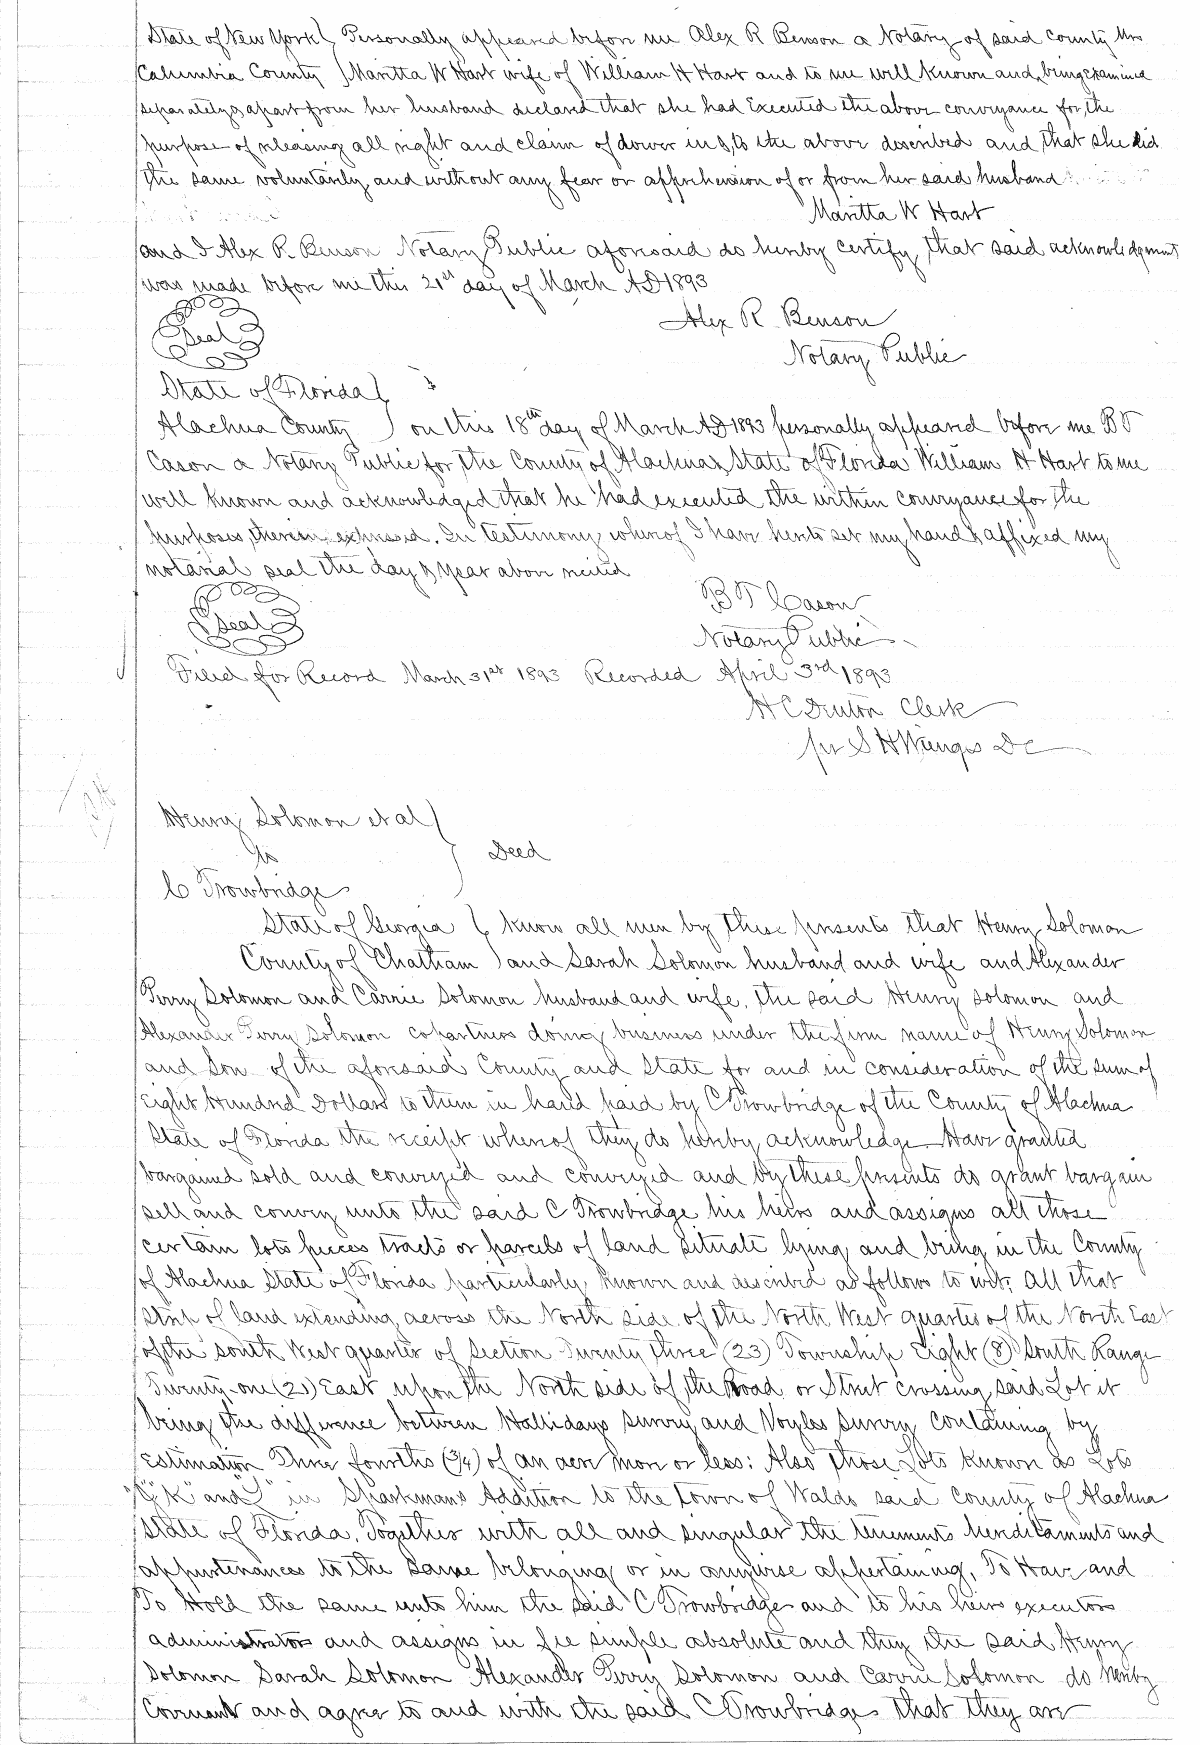 State of New York } Personally appeared before me Alex R Benson a Notary of said county Mrs
Columbia County } Maritta W Hart wife of William H Hart and to me well known and being examined
separately & apart from her husband declared that she had Executed the above conveyance for the
purpose of releasing all right and claim of dower in & to the above described and that she did
the same voluntarily and without any fear or apprehension of or from her said husband
Maritta W Hart
and I Alex R. Benson Notary Public aforesaid do hereby certify that said acknowledgment
was made before me this 21st day of March AD 1893
Seal
Alex R. Benson
Notary Public
State of Florida }
Alachua County } on this 18th day of March AD 1893 personally appeared before me B T
Cason a Notary Public for the County of Alachua & State of Florida William H Hart to me
well known and acknowledged that he had executed the within conveyance for the
purposes therein expressed. In testimony whereof I have hereto set my hand & affixed my
notarial seal the day & year above recited
B T Cason
Seal
Notary Public
Filed for Record March 31st 1893 Recorded April 3rd 1893
H C Denton Clerk
per S H Wienges DC
Henry Solomon et al }
to } Deed
C Trowbridge
State of Georgia } Know all men by these presents that Henry Solomon
County of Chatham } and Sarah Solomon husband and wife and Alexander
Perry Solomon and Carrie Solomon husband and wife, the said Henry Solomon and
Alexander Perry Solomon copartners doing business under the firm name of Henry Solomon
and Son of the aforesaid County and State for and in consideration of the sum of
Eight Hundred Dollars to them in hand paid by C Trowbridge of the County of Alachua
State of Florida the receipt whereof they do hereby acknowledge Have granted
bargained sold and conveyed and conveyed and by these presents do grant bargain
sell and convey unto the said C Trowbridge his heirs and assigns all those
certain lots pieces tracts or parcels of land situate lying and being in the County
of Alachua State of Florida particularly known and described as follows to wit; All that
strip of land extending across the North side of the North West quarter of the North East
of the South West quarter of Section Twenty three (23) Township Eight (8) South Range
Twenty-one (21) East upon the North side of the Road or Street crossing said Lot it
being the difference between Hallidays survey and Voyles survey containing by
Estimation Three fourths (3/4) of an acre more or less: Also those Lots known as Lots
"K" and "L" in Sparkmans Addition to the town of Waldo said County of Alachua
State of Florida. Together with all and singular the tenements hereditaments and
appurtenances to the same belonging or in anywise appertaining, To Have and
To Hold the same unto him the said C Trowbridge and to his heirs executors
administrators and assigns in fee simple absolute and they the said Henry
Solomon Sarah Solomon Alexander Perry Solomon and Carrie Solomon do hereby
Covenant and agree to and with the said C Trowbridge that they are